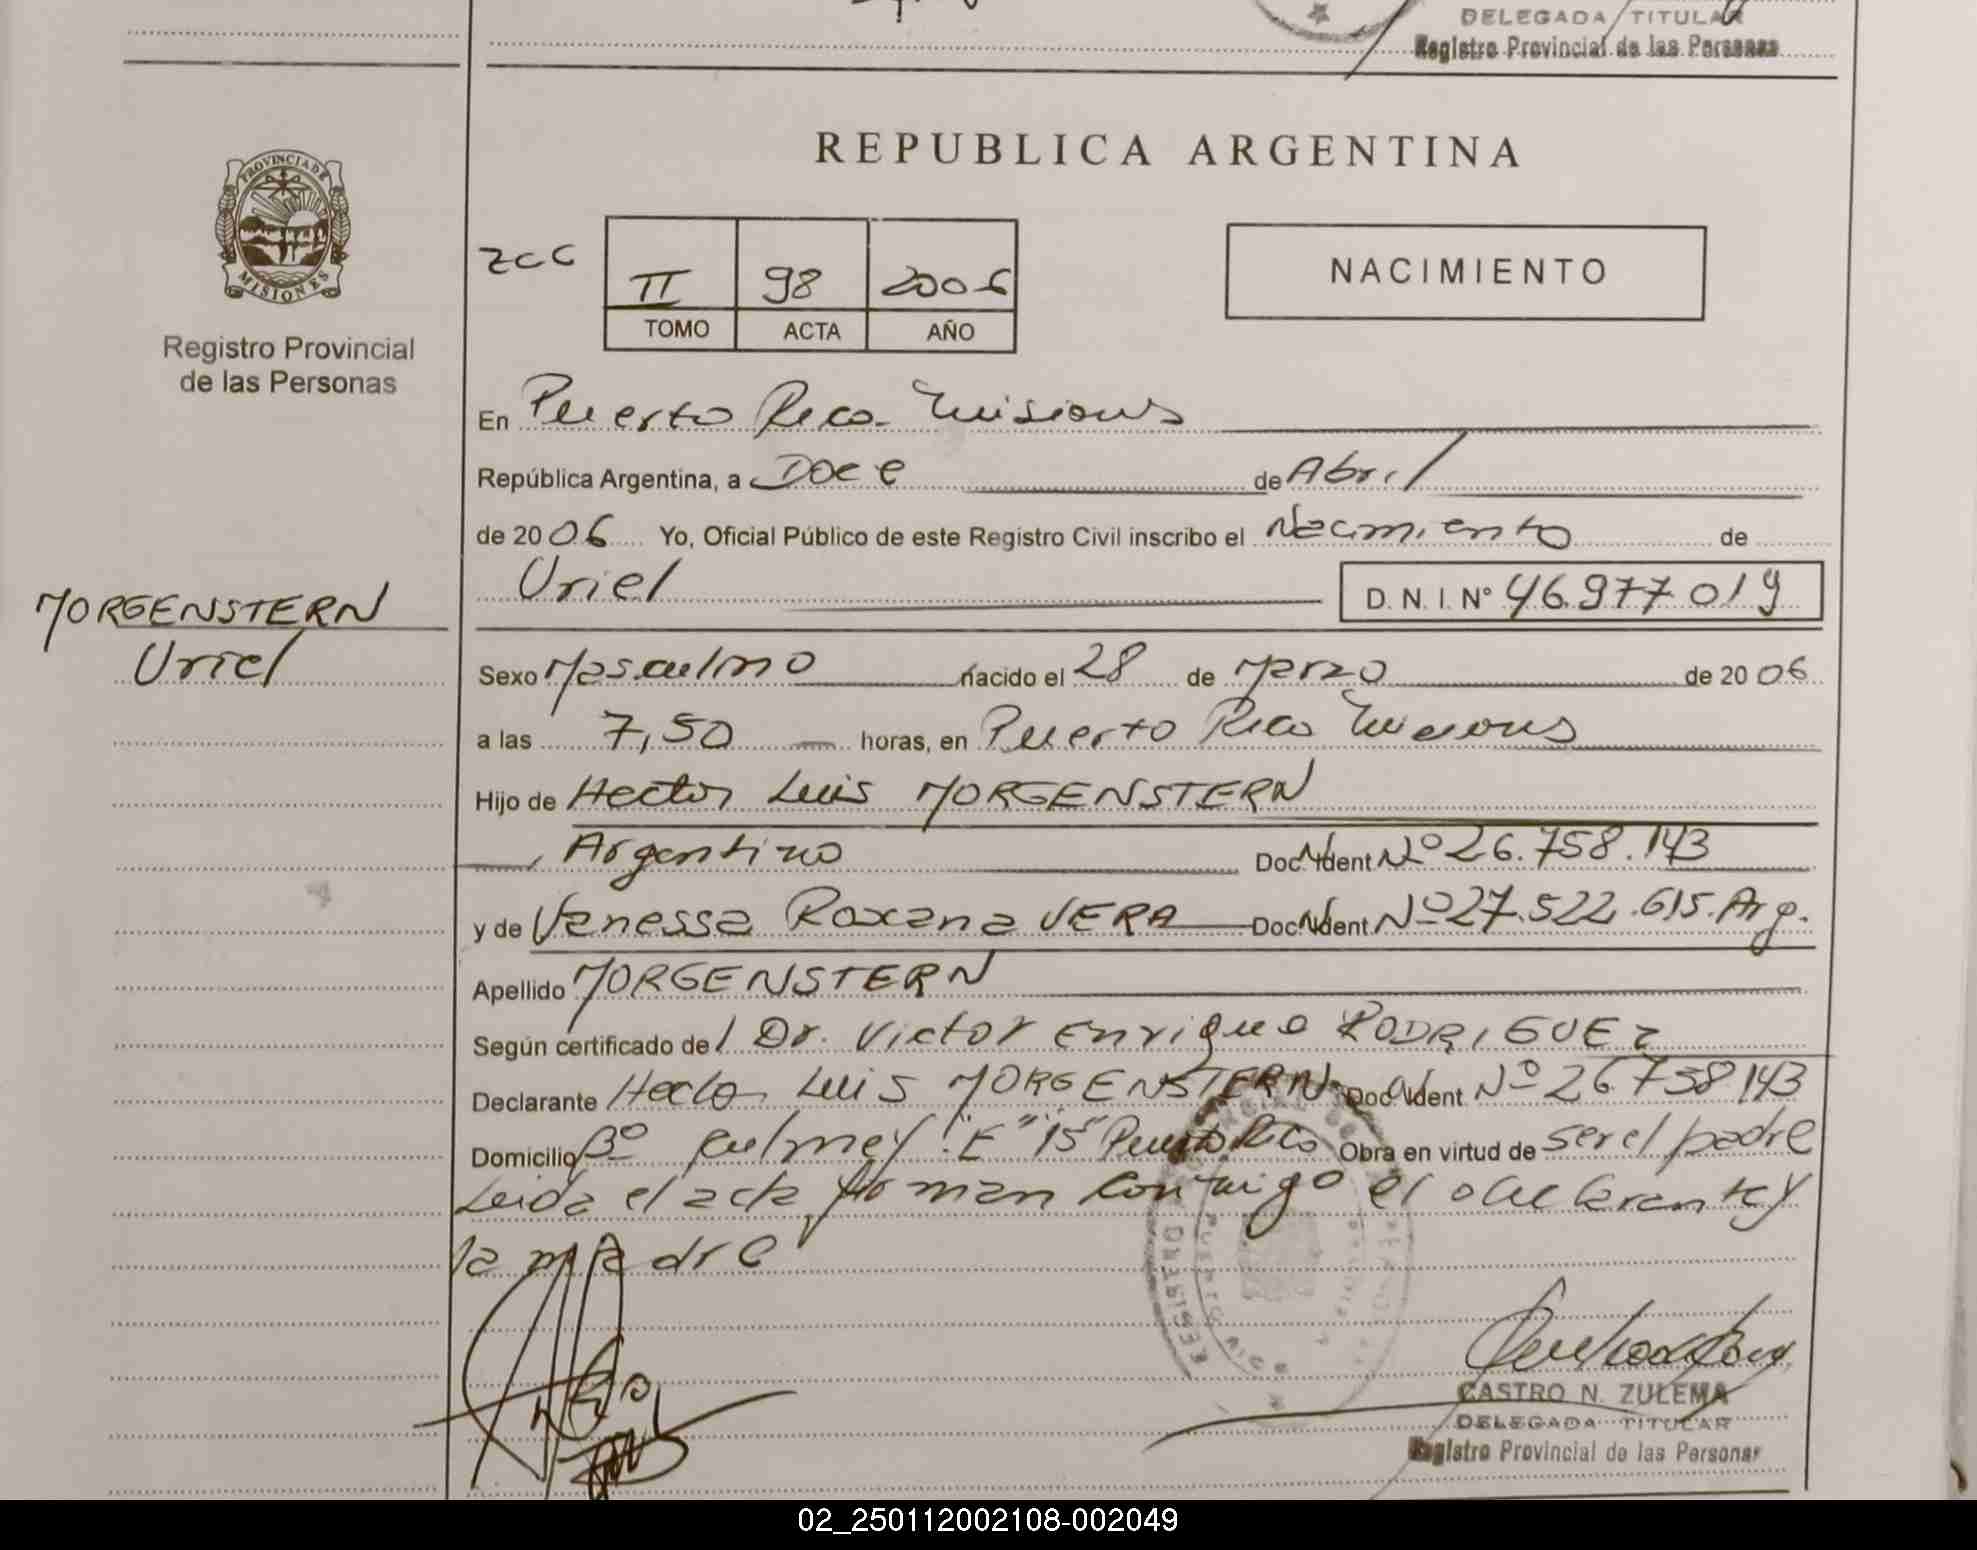 DELEGADA TITULAR
Registro Provincial de las Personas
REPUBLICA ARGENTINA
PROVINCIA DE
MISIONES
Registro Provincial
de las Personas
II 98 2006
TOMO ACTA AÑO
NACIMIENTO
En Puerto Rico - Misiones
República Argentina, a Doce de Abril
de 2006 Yo, Oficial Público de este Registro Civil inscribo el Nacimiento de
Uriel D. N. I. N° 46.977.019
MORGENSTERN
Uriel
Sexo Masculino nacido el 28 de Marzo de 2006
a las 7,50 horas, en Puerto Rico Misiones
Hijo de Hector Luis MORGENSTERN
, Argentino Doc. Ident Nº 26.758.143
y de Vanessa Roxana VERA Doc. Ident Nº 27.522.615. Arg.
Apellido MORGENSTERN
Según certificado del Dr. Victor Enrique RODRIGUEZ
Declarante Hector Luis MORGENSTERN Doc. Ident Nº 26.758.143
Domicilio Bº "E" 15 Puerto Rico Obra en virtud de ser el padre
Leida el acta firman conmigo el declarante y
la madre
REGISTRO
PUERTO RICO
CASTRO N. ZULEMA
DELEGADA TITULAR
Registro Provincial de las Personas
02_250112002108-002049